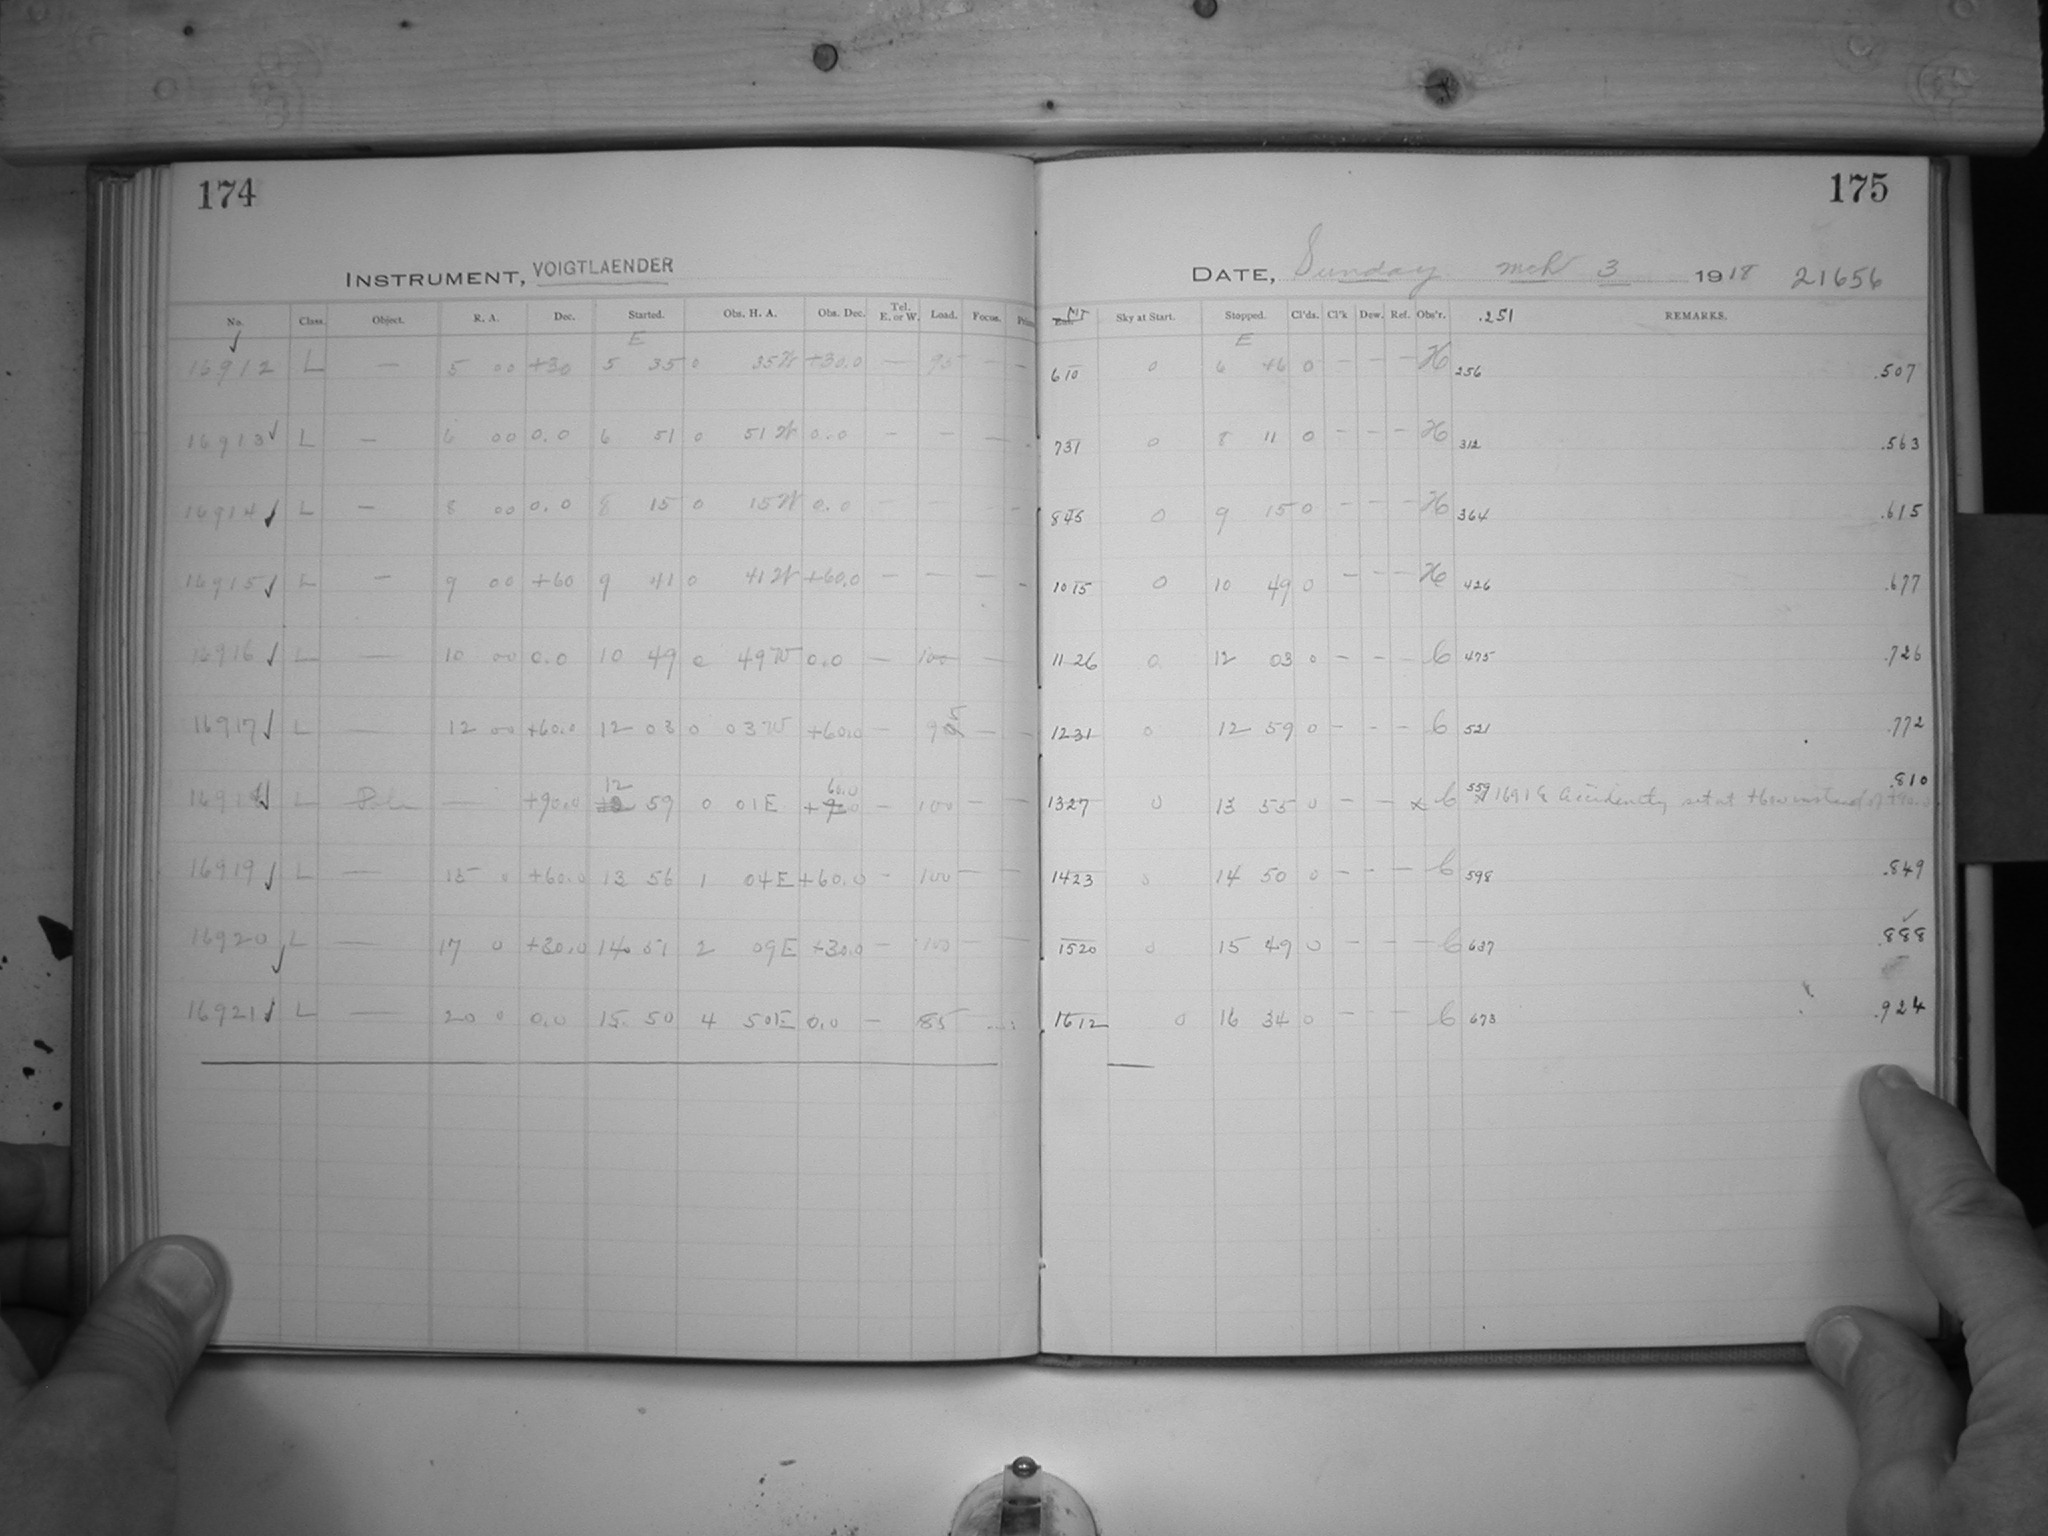 174
175
INSTRUMENT, VOIGTLAENDER
DATE, Sunday mch 3 1918 21656
No. Class. Object. R. A. Dec. Started. Obs. H. A. Obs. Dec. Tel. E. or W. Load. Focus. MT Sky at Start. Stopped. Cl'ds. Cl'k Dew. Ref. Obs'r. .251 REMARKS.
E E
16912 L — 5 00 +30 5 35 0 35W +30.0 — 95 — — 610 0 6 46 0 — — — H 256 .507
16913 L — 6 00 0.0 6 51 0 51W 0.0 — — — 731 0 8 11 0 — — — H 312 .563
16914 L — 8 00 0.0 8 15 0 15W 0.0 — — — 845 0 9 15 0 — — — H 364 .615
16915 L — 9 00 +60 9 41 0 41W +60.0 — — — — 1015 0 10 49 0 — — — H 426 .677
16916 L — 10 00 0.0 10 49 0 49W 0.0 — 100 — 1126 0 12 03 0 — — — C 475 .726
16917 L — 12 00 +60.0 12 03 0 03W +60.0 — 95 — — 1231 0 12 59 0 — — — C 521 .772
16918 L Pole — +90.0 12 59 0 01E 60.0 — 100 — — 1327 0 13 55 0 — — x C 559 x 16918 accidently set at +60.0 instead of +90.0 .810
16919 L — 15 0 +60.0 13 56 1 04E +60.0 — 100 — — 1423 0 14 50 0 — — — C 598 .849
16920 L — 17 0 +30.0 14 51 2 09E +30.0 — 100 — — 1520 0 15 49 0 — — — C 637 .888
16921 L — 20 0 0.0 15 50 4 50E 0.0 — 85 1612 0 16 34 0 — — — C 673 .924